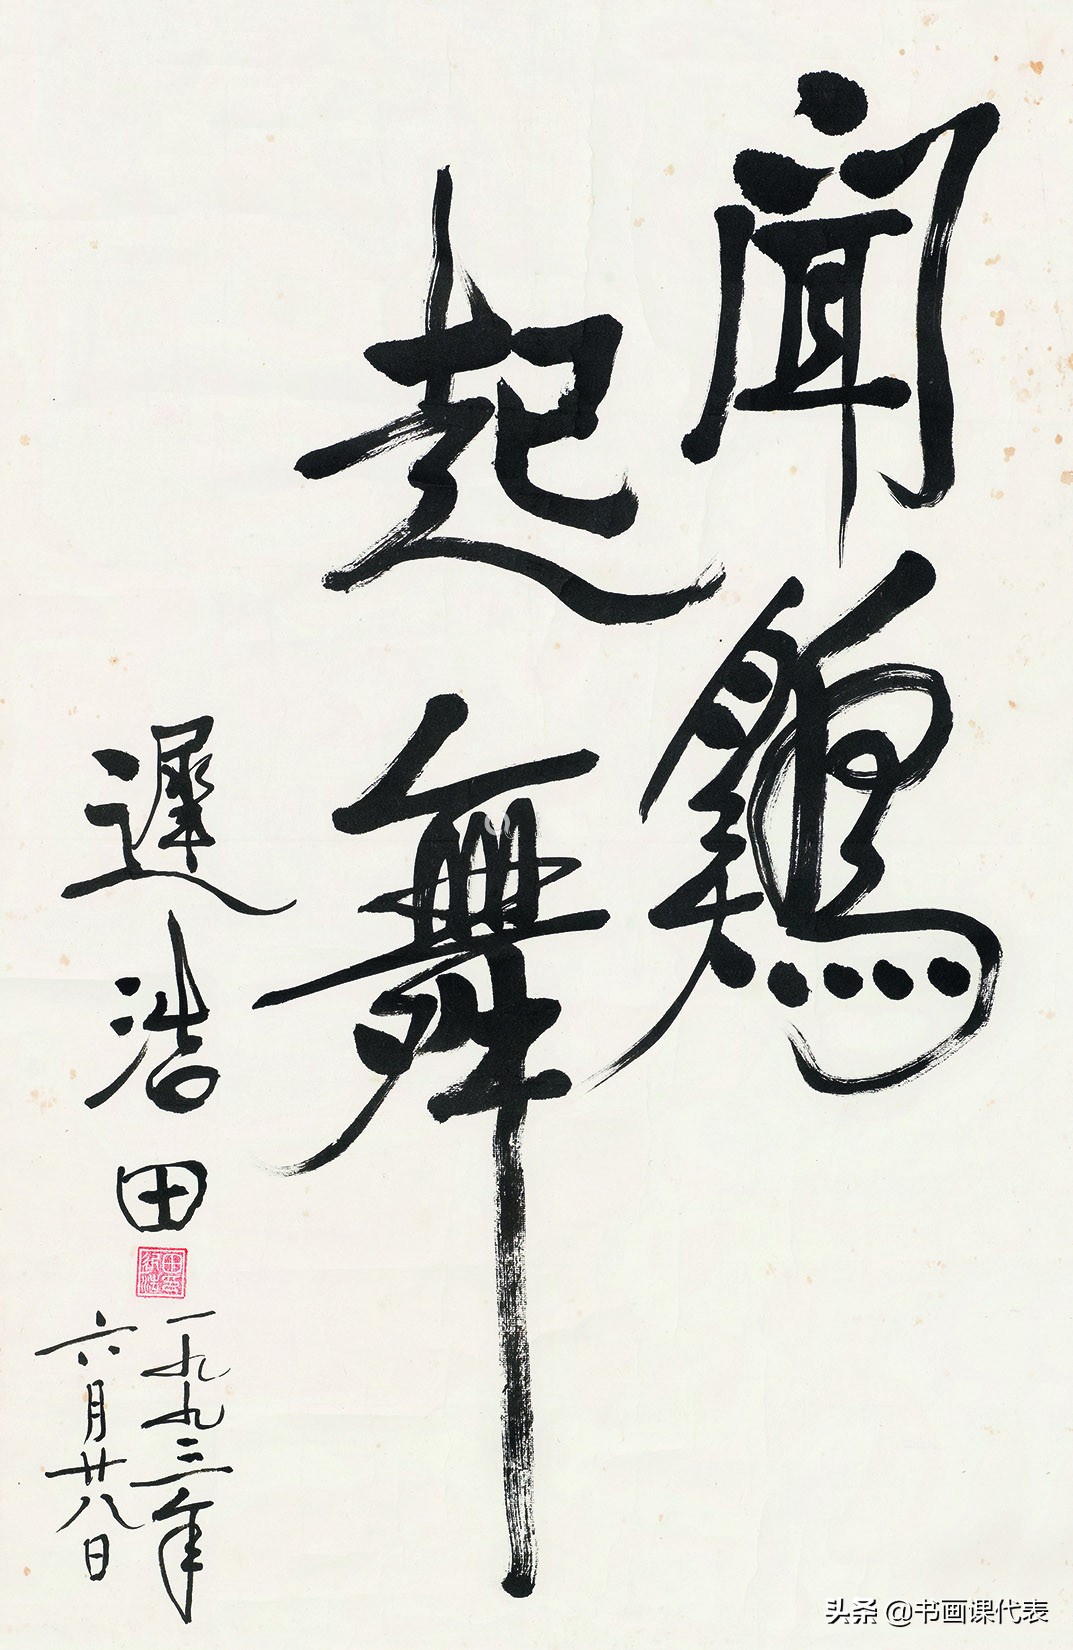 聞鷄
起舞
遲浩田
一九九三年
六月廿八日
头条 @书画课代表